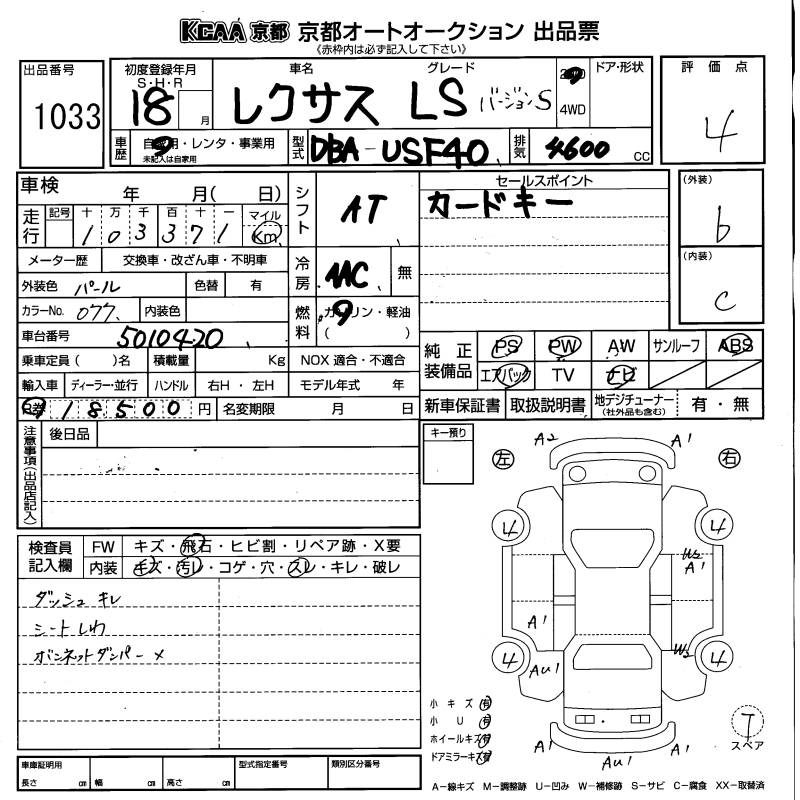 KCAA 京都 京都オートオークション 出品票
《赤枠内は必ず記入して下さい》
出品番号 1033
初度登録年月 S・H・R 18 月
車名 レクサス LS
グレード バージョンS
4WD
ドア・形状
評価点 4
車歴 自家用・レンタ・事業用
未記入は自家用
型式 DBA-USF40
排気 4600 cc
車検 年 月( 日)
シフト AT
セールスポイント
カードキー
(外装) b
(内装) c
走行 記号 十 万 千 百 十 一 マイル
103371 Km
メーター歴 交換車・改ざん車・不明車
冷房 AAC 無
外装色 パール 色替 有
カラーNo. 077 内装色
燃料 ガソリン・軽油
( )
車台番号 5010420
純正装備品 PS PW AW サンルーフ ABS
エアバック TV ナビ
乗車定員( )名 積載量 Kg NOX 適合・不適合
輸入車 ディーラー・並行 ハンドル 右H・左H モデル年式 年
R券 18500 円 名変期限 月 日
新車保証書 取扱説明書 地デジチューナー(社外品も含む) 有・無
注意事項(出品店記入)
後日品
キー預り
左 右
A2 A1
4 4
W2
A1
A1
W2
4 4
AU1
A1 A1
AU1
検査員記入欄 FW キズ・飛石・ヒビ割・リペア跡・X要
内装 キズ・汚レ・コゲ・穴・スレ・キレ・破レ
ダッシュ キレ
シート しわ
ボンネットダンパー メ
小キズ 有
小U 有
ホイールキズ 有
ドアミラーキズ 有
T
スペア
車庫証明用
長さ cm 幅 cm 高さ cm
型式指定番号 類別区分番号
A-線キズ M-調整跡 U-凹み W-補修跡 S-サビ C-腐食 XX-取替済